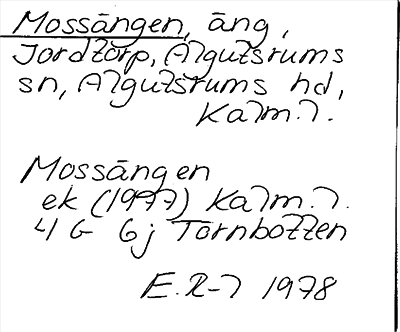 Mossängen, äng,
Jordtorp, Algutsrums
sn, Algutsrums hd,
Kalm.l.
Mossängen
ek (1977) Kalm.l.
4 G 6j Tornbotten
E.R-l 1978